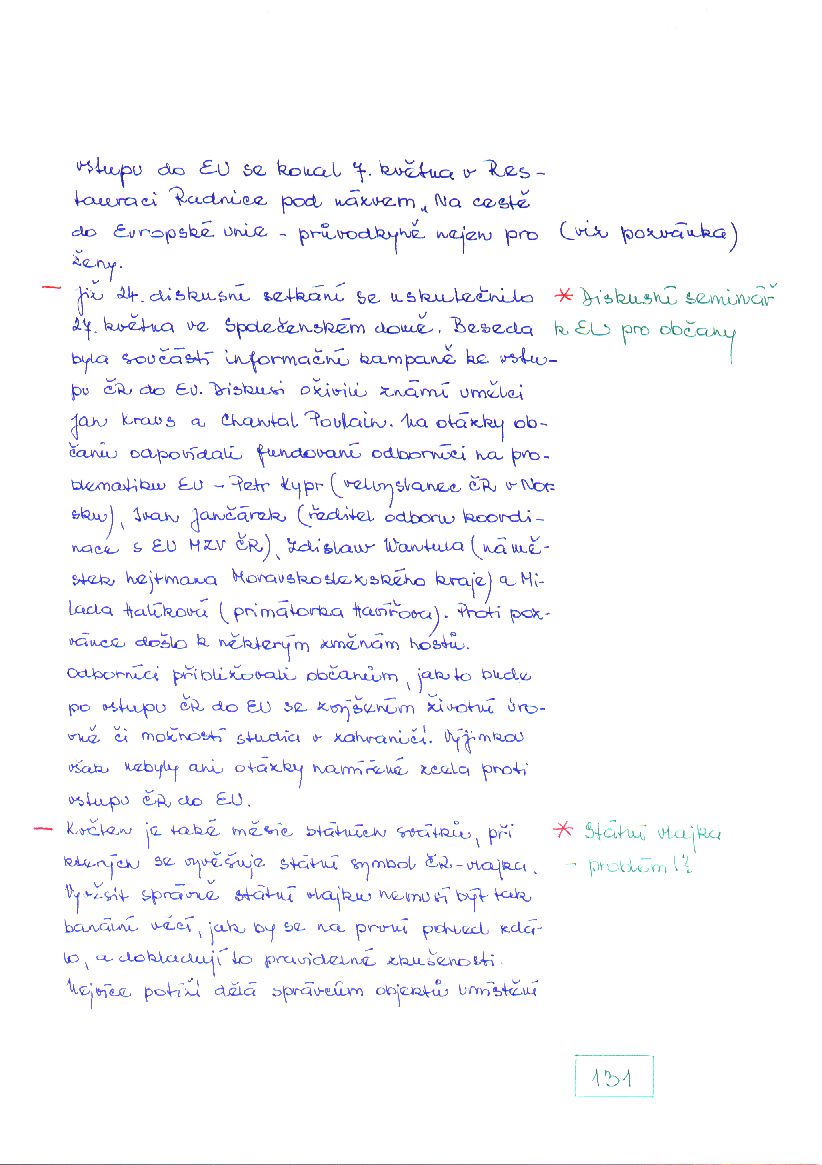 vstupu do EU se konal 7. května v Res-
tauraci Radnice pod názvem „Na cestě
do Evropské unie - průvodkyně nejen pro (viz pozvánka)
ženy.
- Již 24. diskusní setkání se uskutečnilo * Diskusní seminář
27. května ve Společenském domě. Beseda k EU pro občany
byla součástí informační kampaně ke vstu-
pu ČR do EU. Diskusi oživili známí umělci
Jan Kraus a Chantal Poulain. Na otázky ob-
čanů odpovídali fundovaní odborníci na pro-
blematiku EU - Petr Kypr (velvyslanec ČR v Nor-
sku), Ivan Jančárek (ředitel odboru koordi-
nace s EU MZV ČR), Zdislaw Wantula (námě-
stek hejtmana Moravskoslezského kraje) a Mi-
lada Halíková (primátorka Havířova). Proti poz-
vánce došlo k některým změnám hostů.
Odborníci přibližovali občanům, jak to bude
po vstupu ČR do EU se zvýšením životní úro-
vně či možností studia v zahraničí. Výjimkou
však nebyly ani otázky namířené zcela proti
vstupu ČR do EU.
- Květen je také měsíc státních svátků, při * Státní vlajka
kterých se vyvěšuje státní symbol ČR - vlajka. - problém!?
Vyvěsit správně státní vlajku nemusí být tak
banální věcí, jak by se na první pohled zdá-
lo, a dokladují to pravidelné zkušenosti.
Nejvíce potíží dělá správcům objektů umístění
131